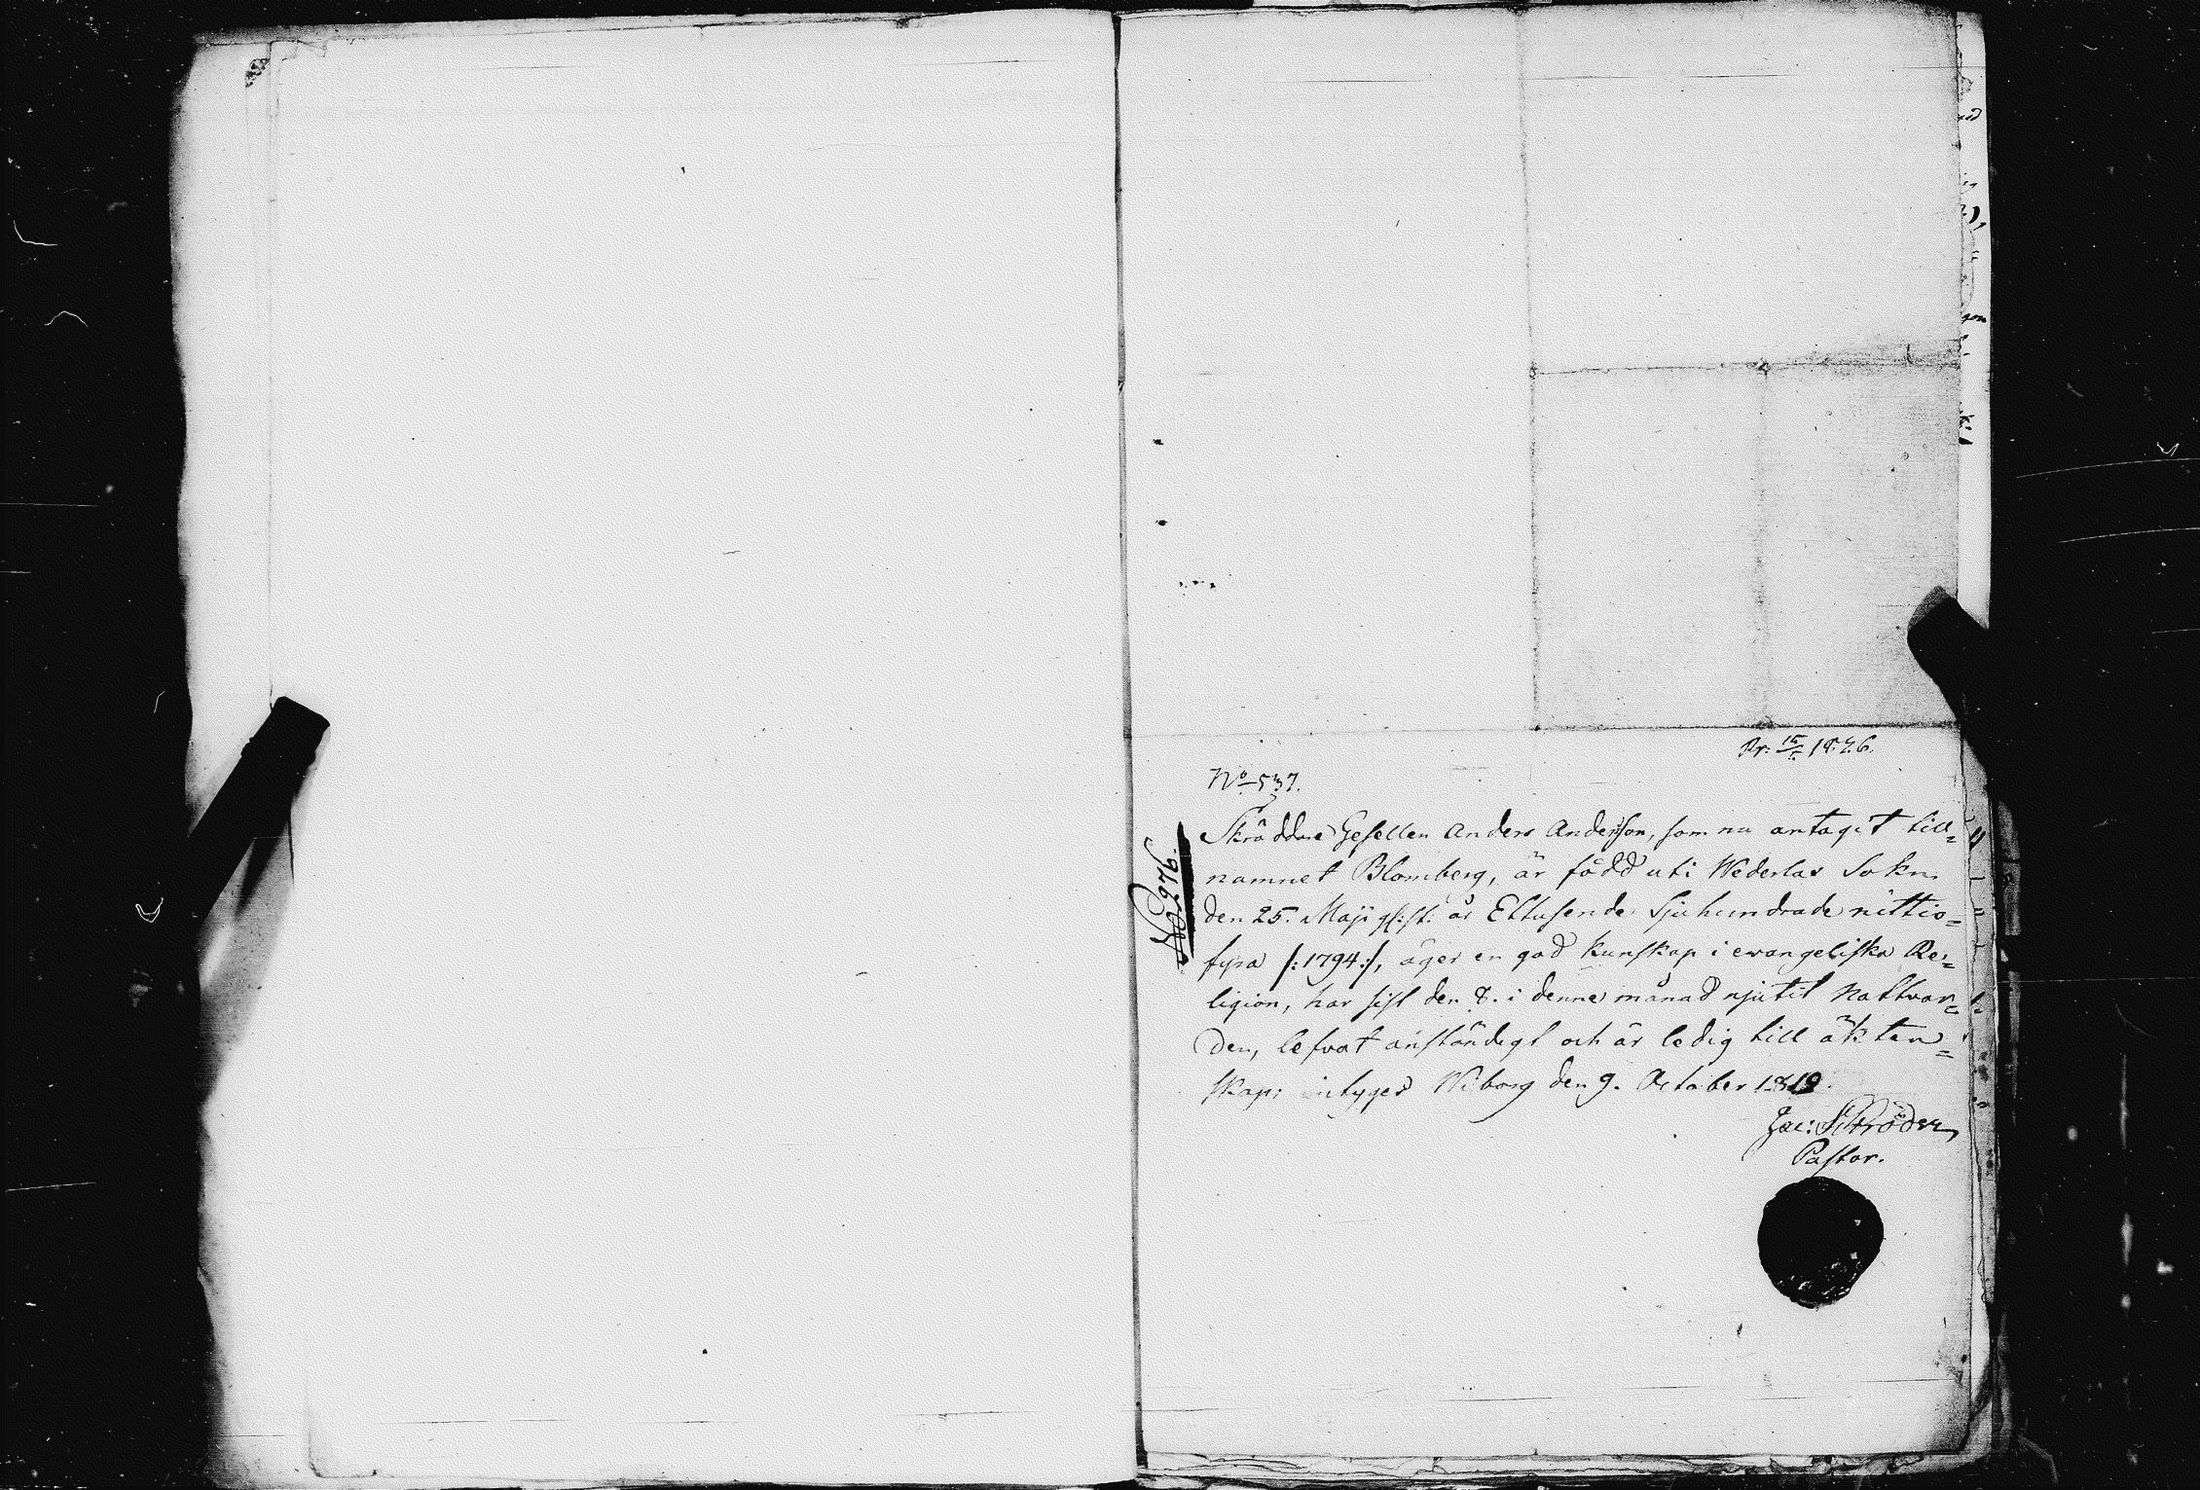 Pr: 15/5 1826.
No 537.
No 276.
Skräddare Gesellen Anders Andersson, som nu antagit till=
namnet Blomberg, är född uti Wederlax Sokn
den 25. Maji år Ettusende Sjuhundrade nittio=
fyra /:1794:/, äger en god kunskap i evangeliska Re=
ligion, har sist den 8. i denne månad njutit Nattvar=
den, lefvat anständigt och är ledig till äkten=
skap; intygas Wiborg den 9. October 1819.
Jac: Schröder
Pastor.